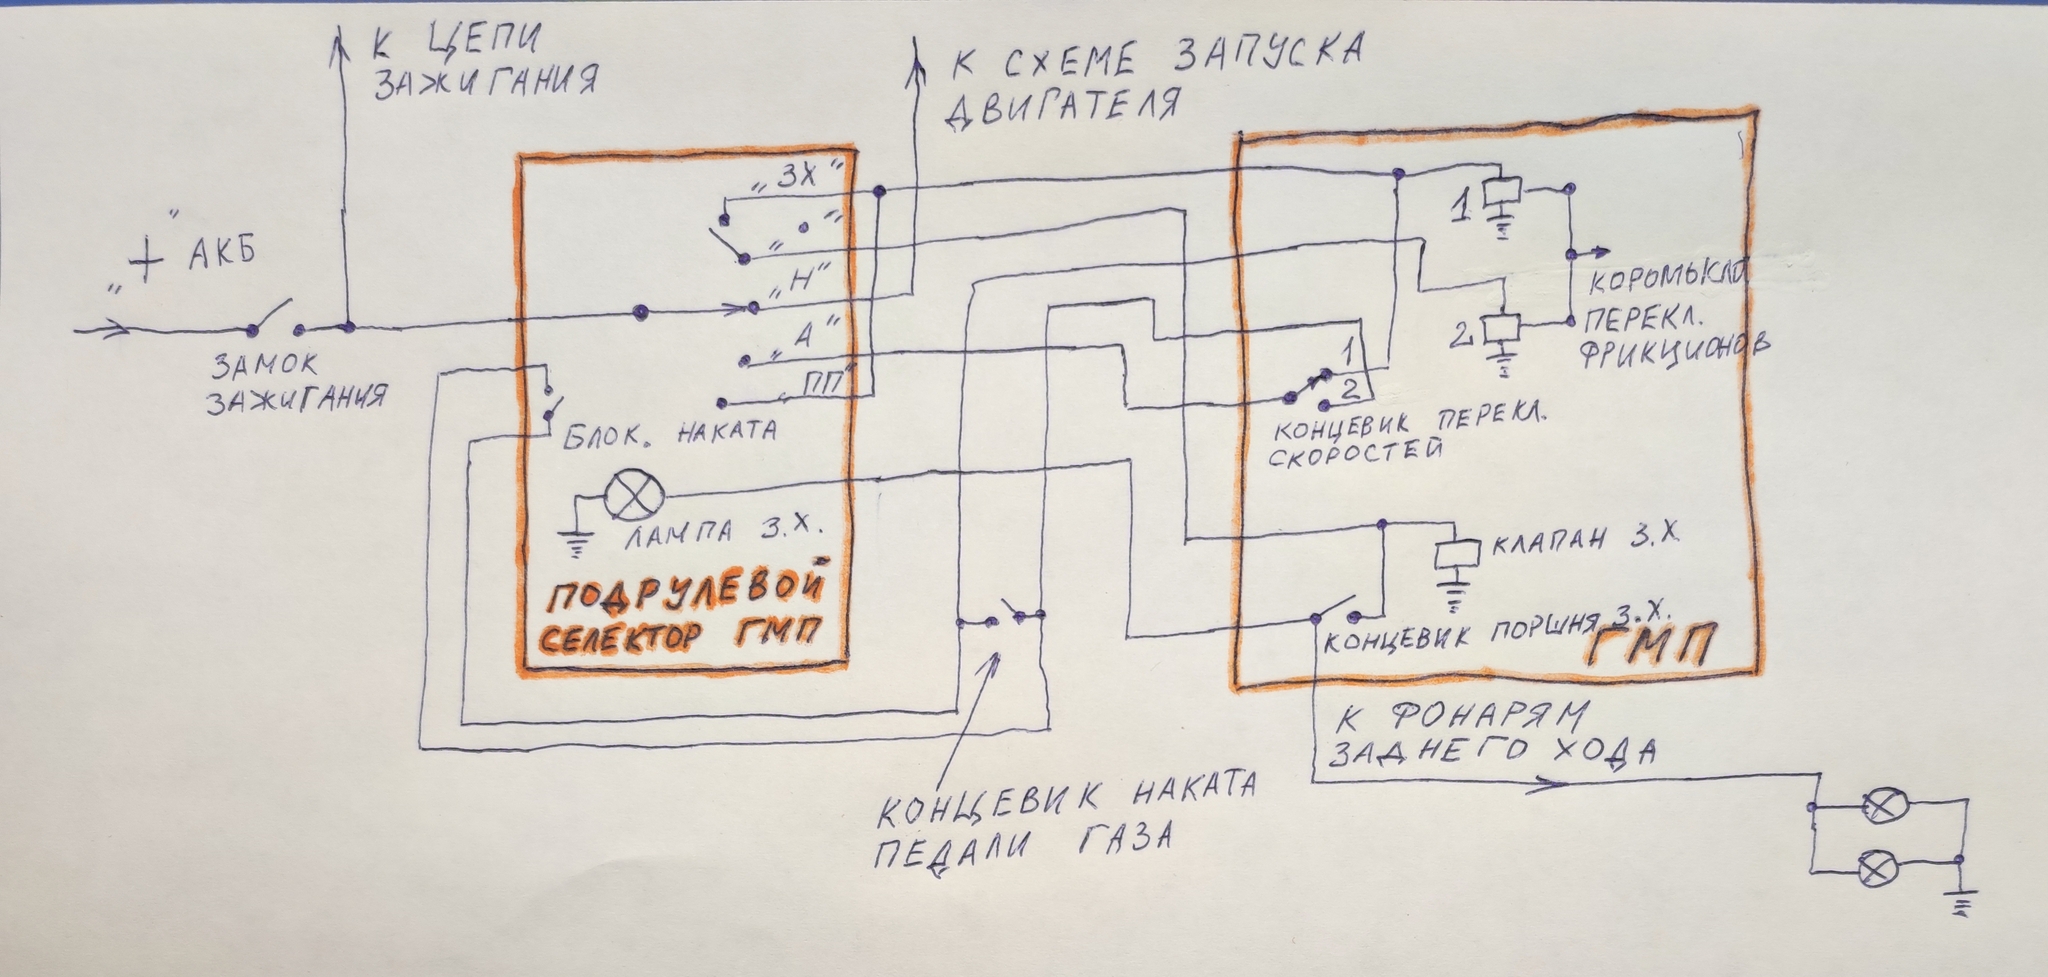 К ЦЕПИ
ЗАЖИГАНИЯ
К СХЕМЕ ЗАПУСКА
ДВИГАТЕЛЯ
"+" АКБ
ЗАМОК
ЗАЖИГАНИЯ
„ЗХ“
„•“
„Н“
„А“
„ПП“
БЛОК. НАКАТА
ЛАМПА З.Х.
ПОДРУЛЕВОЙ
СЕЛЕКТОР ГМП
1
2
КОРОМЫСЛО
ПЕРЕКЛ.
ФРИКЦИОНОВ
1
2
КОНЦЕВИК ПЕРЕКЛ.
СКОРОСТЕЙ
КЛАПАН З.Х
КОНЦЕВИК ПОРШНЯ З.Х.
ГМП
К ФОНАРЯМ
ЗАДНЕГО ХОДА
КОНЦЕВИК НАКАТА
ПЕДАЛИ ГАЗА